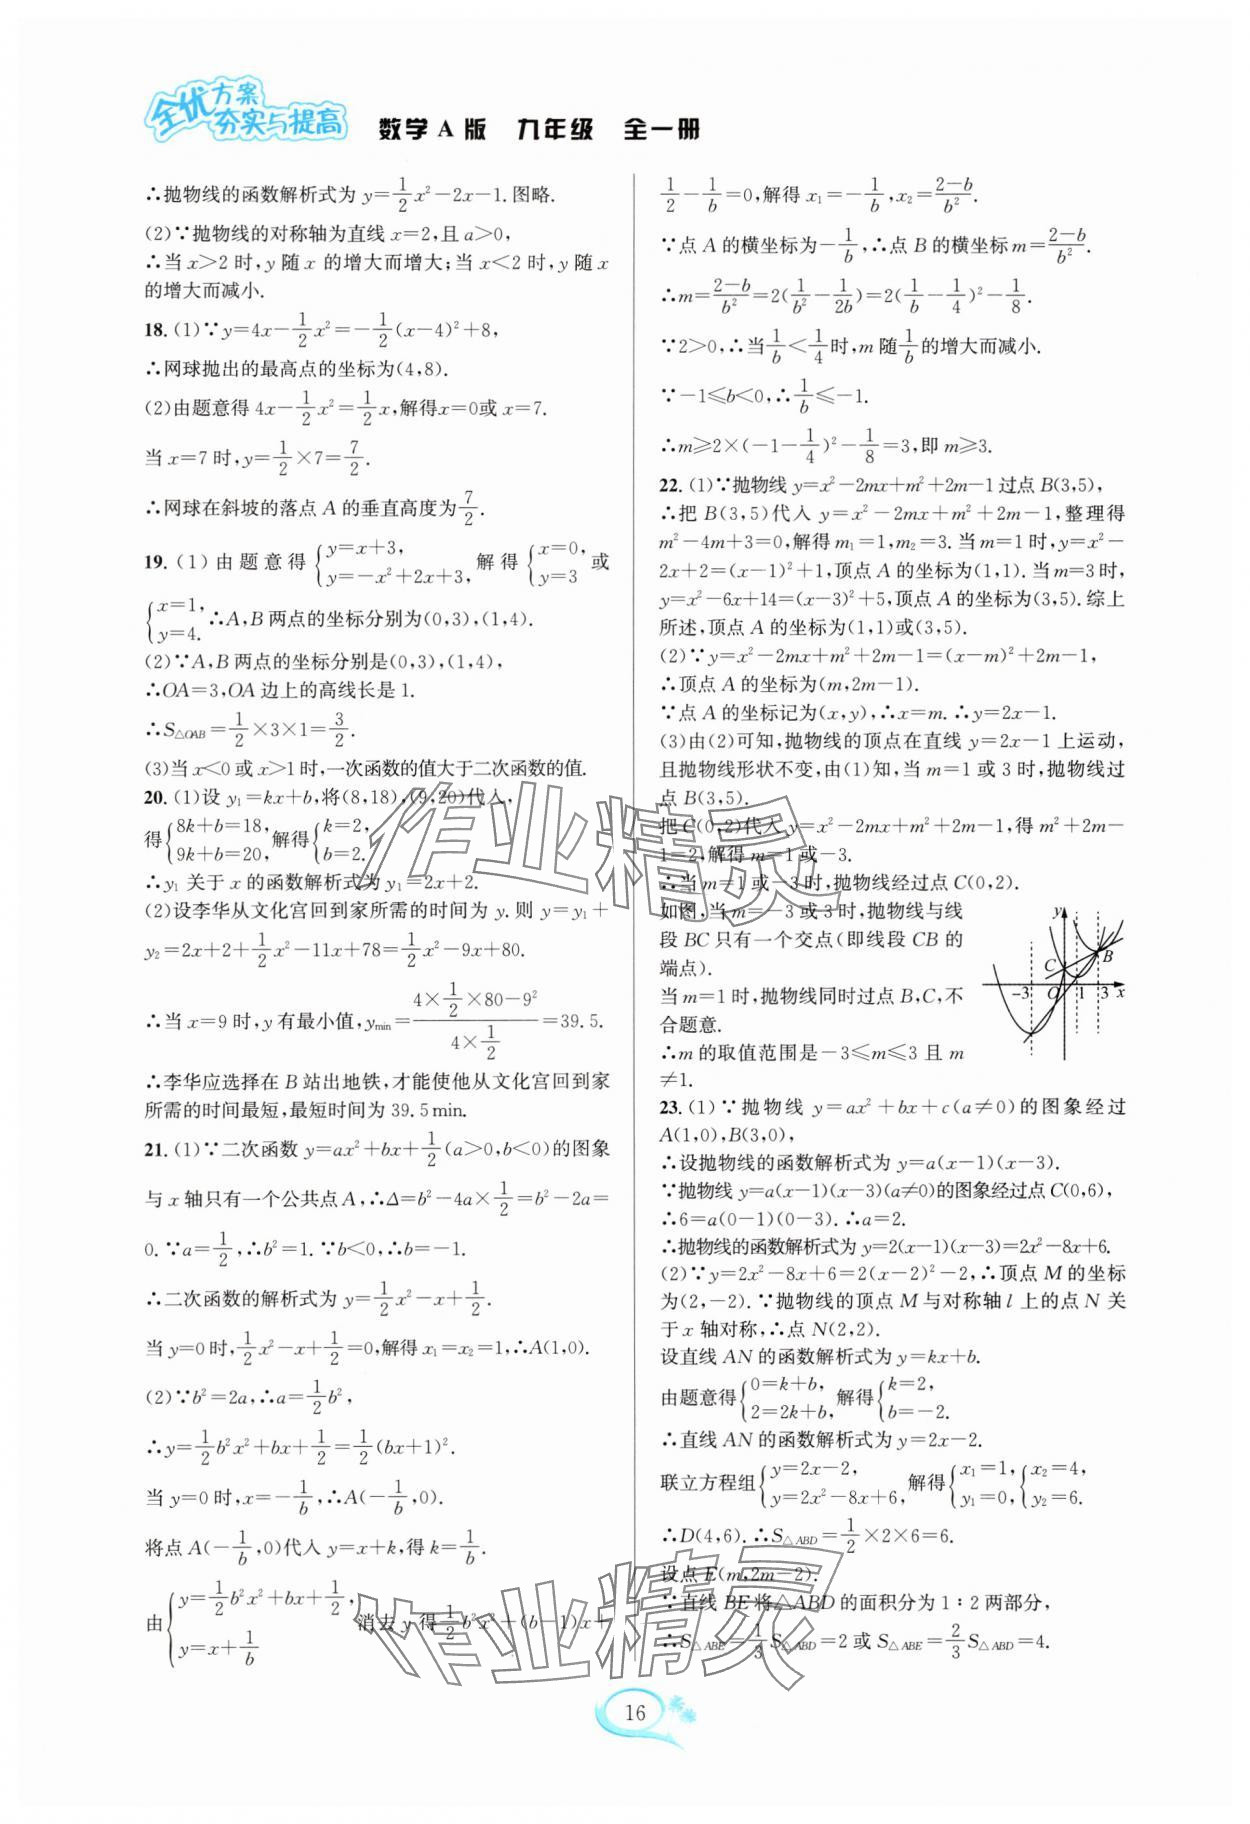 全优方案
夯实与提高
数学A版 九年级 全一册
∴抛物线的函数解析式为 y=1/2x²-2x-1.图略.
(2)∵抛物线的对称轴为直线 x=2,且 a>0,
∴当 x>2 时,y 随 x 的增大而增大;当 x<2 时,y 随 x
的增大而减小.
18. (1)∵y=4x-1/2x²=-1/2(x-4)²+8,
∴网球抛出的最高点的坐标为(4,8).
(2)由题意得 4x-1/2x²=1/2x,解得x=0或 x=7.
当 x=7 时,y=1/2×7=7/2.
∴网球在斜坡的落点 A 的垂直高度为7/2.
19. (1)由题意得{y=x+3, y=-x²+2x+3, 解得{x=0, y=3 或
{x=1, y=4. ∴A,B 两点的坐标分别为(0,3),(1,4).
(2)∵A,B 两点的坐标分别是(0,3),(1,4),
∴OA=3,OA 边上的高线长是 1.
∴S△OAB=1/2×3×1=3/2.
(3)当 x<0 或 x>1 时,一次函数的值大于二次函数的值.
20. (1)设 y₁=kx+b,将(8,18),(9,20)代入,
得{8k+b=18, 9k+b=20, 解得{k=2, b=2.
∴y₁ 关于 x 的函数解析式为 y₁=2x+2.
(2)设李华从文化宫回到家所需的时间为 y.则 y=y₁+
y₂=2x+2+1/2x²-11x+78=1/2x²-9x+80.
∴当 x=9 时,y 有最小值,y_min=(4×1/2×80-9²)/(4×1/2)=39.5.
∴李华应选择在 B 站出地铁,才能使他从文化宫回到家
所需的时间最短,最短时间为 39.5 min.
21. (1)∵二次函数 y=ax²+bx+1/2(a>0,b<0)的图象
与 x 轴只有一个公共点 A,∴Δ=b²-4a×1/2=b²-2a=
0.∵a=1/2,∴b²=1.∵b<0,∴b=-1.
∴二次函数的解析式为 y=1/2x²-x+1/2.
当 y=0 时,1/2x²-x+1/2=0,解得 x₁=x₂=1,∴A(1,0).
(2)∵b²=2a,∴a=1/2b²,
∴y=1/2b²x²+bx+1/2=1/2(bx+1)².
当 y=0 时,x=-1/b,∴A(-1/b,0).
将点 A(-1/b,0)代入 y=x+k,得 k=1/b.
由{y=1/2b²x²+bx+1/2, y=x+1/b 消去 y 得1/2b²x²+(b-1)x+
1/2-1/b=0,解得 x₁=-1/b,x₂=(2-b)/b².
∵点 A 的横坐标为-1/b,∴点 B 的横坐标 m=(2-b)/b².
∴m=(2-b)/b²=2(1/b²-1/2b)=2(1/b-1/4)²-1/8.
∵2>0,∴当1/b<1/4时,m 随1/b的增大而减小.
∵-1≤b<0,∴1/b≤-1.
∴m≥2×(-1-1/4)²-1/8=3,即 m≥3.
22. (1)∵抛物线 y=x²-2mx+m²+2m-1 过点 B(3,5),
∴把 B(3,5)代入 y=x²-2mx+m²+2m-1,整理得
m²-4m+3=0,解得 m₁=1,m₂=3.当 m=1 时,y=x²-
2x+2=(x-1)²+1,顶点 A 的坐标为(1,1).当 m=3 时,
y=x²-6x+14=(x-3)²+5,顶点 A 的坐标为(3,5).综上
所述,顶点 A 的坐标为(1,1)或(3,5).
(2)∵y=x²-2mx+m²+2m-1=(x-m)²+2m-1,
∴顶点 A 的坐标为(m,2m-1).
∵点 A 的坐标记为(x,y),∴x=m.∴y=2x-1.
(3)由(2)可知,抛物线的顶点在直线 y=2x-1 上运动,
且抛物线形状不变,由(1)知,当 m=1 或 3 时,抛物线过
点 B(3,5).
把 C(0,2)代入 y=x²-2mx+m²+2m-1,得 m²+2m-
1=2,解得 m=1 或-3.
∴当 m=1 或-3 时,抛物线经过点 C(0,2).
如图,当 m=-3 或 3 时,抛物线与线
段 BC 只有一个交点(即线段 CB 的
端点).
当 m=1 时,抛物线同时过点 B,C,不
合题意.
∴m 的取值范围是-3≤m≤3 且 m
≠1.
y
C
B
-3 O 1 3 x
23. (1)∵抛物线 y=ax²+bx+c(a≠0)的图象经过
A(1,0),B(3,0),
∴设抛物线的函数解析式为 y=a(x-1)(x-3).
∵抛物线 y=a(x-1)(x-3)(a≠0)的图象经过点 C(0,6),
∴6=a(0-1)(0-3).∴a=2.
∴抛物线的函数解析式为 y=2(x-1)(x-3)=2x²-8x+6.
(2)∵y=2x²-8x+6=2(x-2)²-2,∴顶点 M 的坐标
为(2,-2).∵抛物线的顶点 M 与对称轴 l 上的点 N 关
于 x 轴对称,∴点 N(2,2).
设直线 AN 的函数解析式为 y=kx+b.
由题意得{0=k+b, 2=2k+b, 解得{k=2, b=-2.
∴直线 AN 的函数解析式为 y=2x-2.
联立方程组{y=2x-2, y=2x²-8x+6, 解得{x₁=1, y₁=0, {x₂=4, y₂=6.
∴D(4,6).∴S△ABD=1/2×2×6=6.
设点 E(m,2m-2).
∵直线 BE 将△ABD 的面积分为 1∶2 两部分,
∴S△ABE=1/3S△ABD=2 或 S△ABE=2/3S△ABD=4.
作业精灵
作业精灵
16